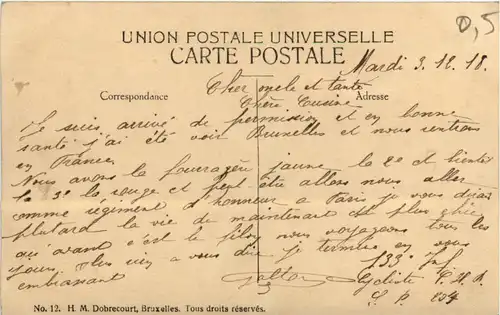 0,5
UNION POSTALE UNIVERSELLE
CARTE POSTALE
Mardi 3.12.18.
Cher oncle et tante
Correspondance
Chère Cusine
Adresse
Je suis arrivé de permission et en bonne
santé j'ai été voir Bruxelles et nous rentrons
en France.
Nous avons la fouragère jaune la 2e et bientot
la 3e la rouge et peut-être allons nous aller
comme régiment d'honneur a Paris je vous dirais
plutard la vie de maintenant est plus chic
qu'avant c'est le filon nous voyageons tous les
jours plus rien a vous dire je termine en vous
embrassant
133e Inf
Cycliste C.H.R.
S.P. 204
No. 12. H. M. Dobrecourt, Bruxelles. Tous droits réservés.